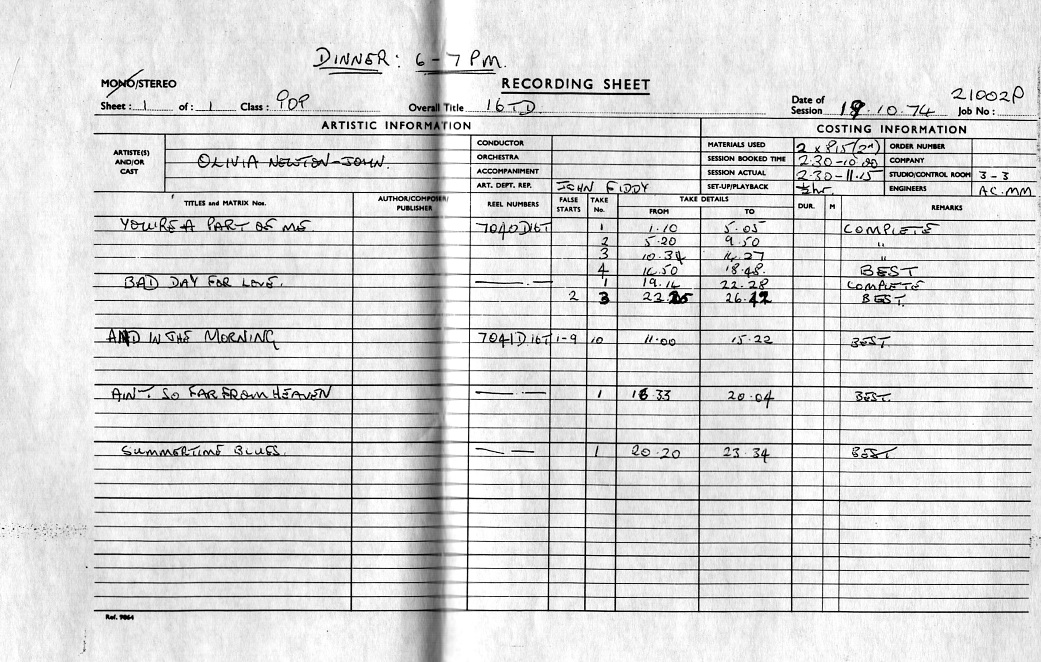 DINNER: 6-7 PM.
MONO/STEREO
RECORDING SHEET
21002P
Sheet: 1 of: 1 Class: POP Overall Title 16TD Date of Session 18.10.74 Job No:
ARTISTIC INFORMATION COSTING INFORMATION
ARTISTE(S) AND/OR CAST OLIVIA NEWTON-JOHN.
CONDUCTOR MATERIALS USED 2 x 815 (2") ORDER NUMBER
ORCHESTRA SESSION BOOKED TIME 2.30-10.00 COMPANY
ACCOMPANIMENT SESSION ACTUAL 2.30-11.15 STUDIO/CONTROL ROOM 3-3
ART. DEPT. REP. JOHN FIDDY SET-UP/PLAYBACK ½hr. ENGINEERS AC.MM
TITLES and MATRIX Nos. AUTHOR/COMPOSER/PUBLISHER REEL NUMBERS FALSE STARTS TAKE No. TAKE DETAILS FROM TO DUR. M REMARKS
YOU'RE A PART OF ME 7040D16T 1 1.10 5.05 COMPLETE
2 5.20 9.50 "
3 10.34 14.27 "
4 14.50 18.48. BEST
BAD DAY FOR LOVE. 1 19.14 22.28 COMPLETE
2 3 26.42 BEST.
AND IN THE MORNING 7041D16T 1-9 10 11.00 15.22 BEST.
AIN'T. SO FAR FROM HEAVEN 1 16.33 20.04 BEST.
SUMMERTIME BLUES. 1 20.20 23.34 BEST
Ref. 9864